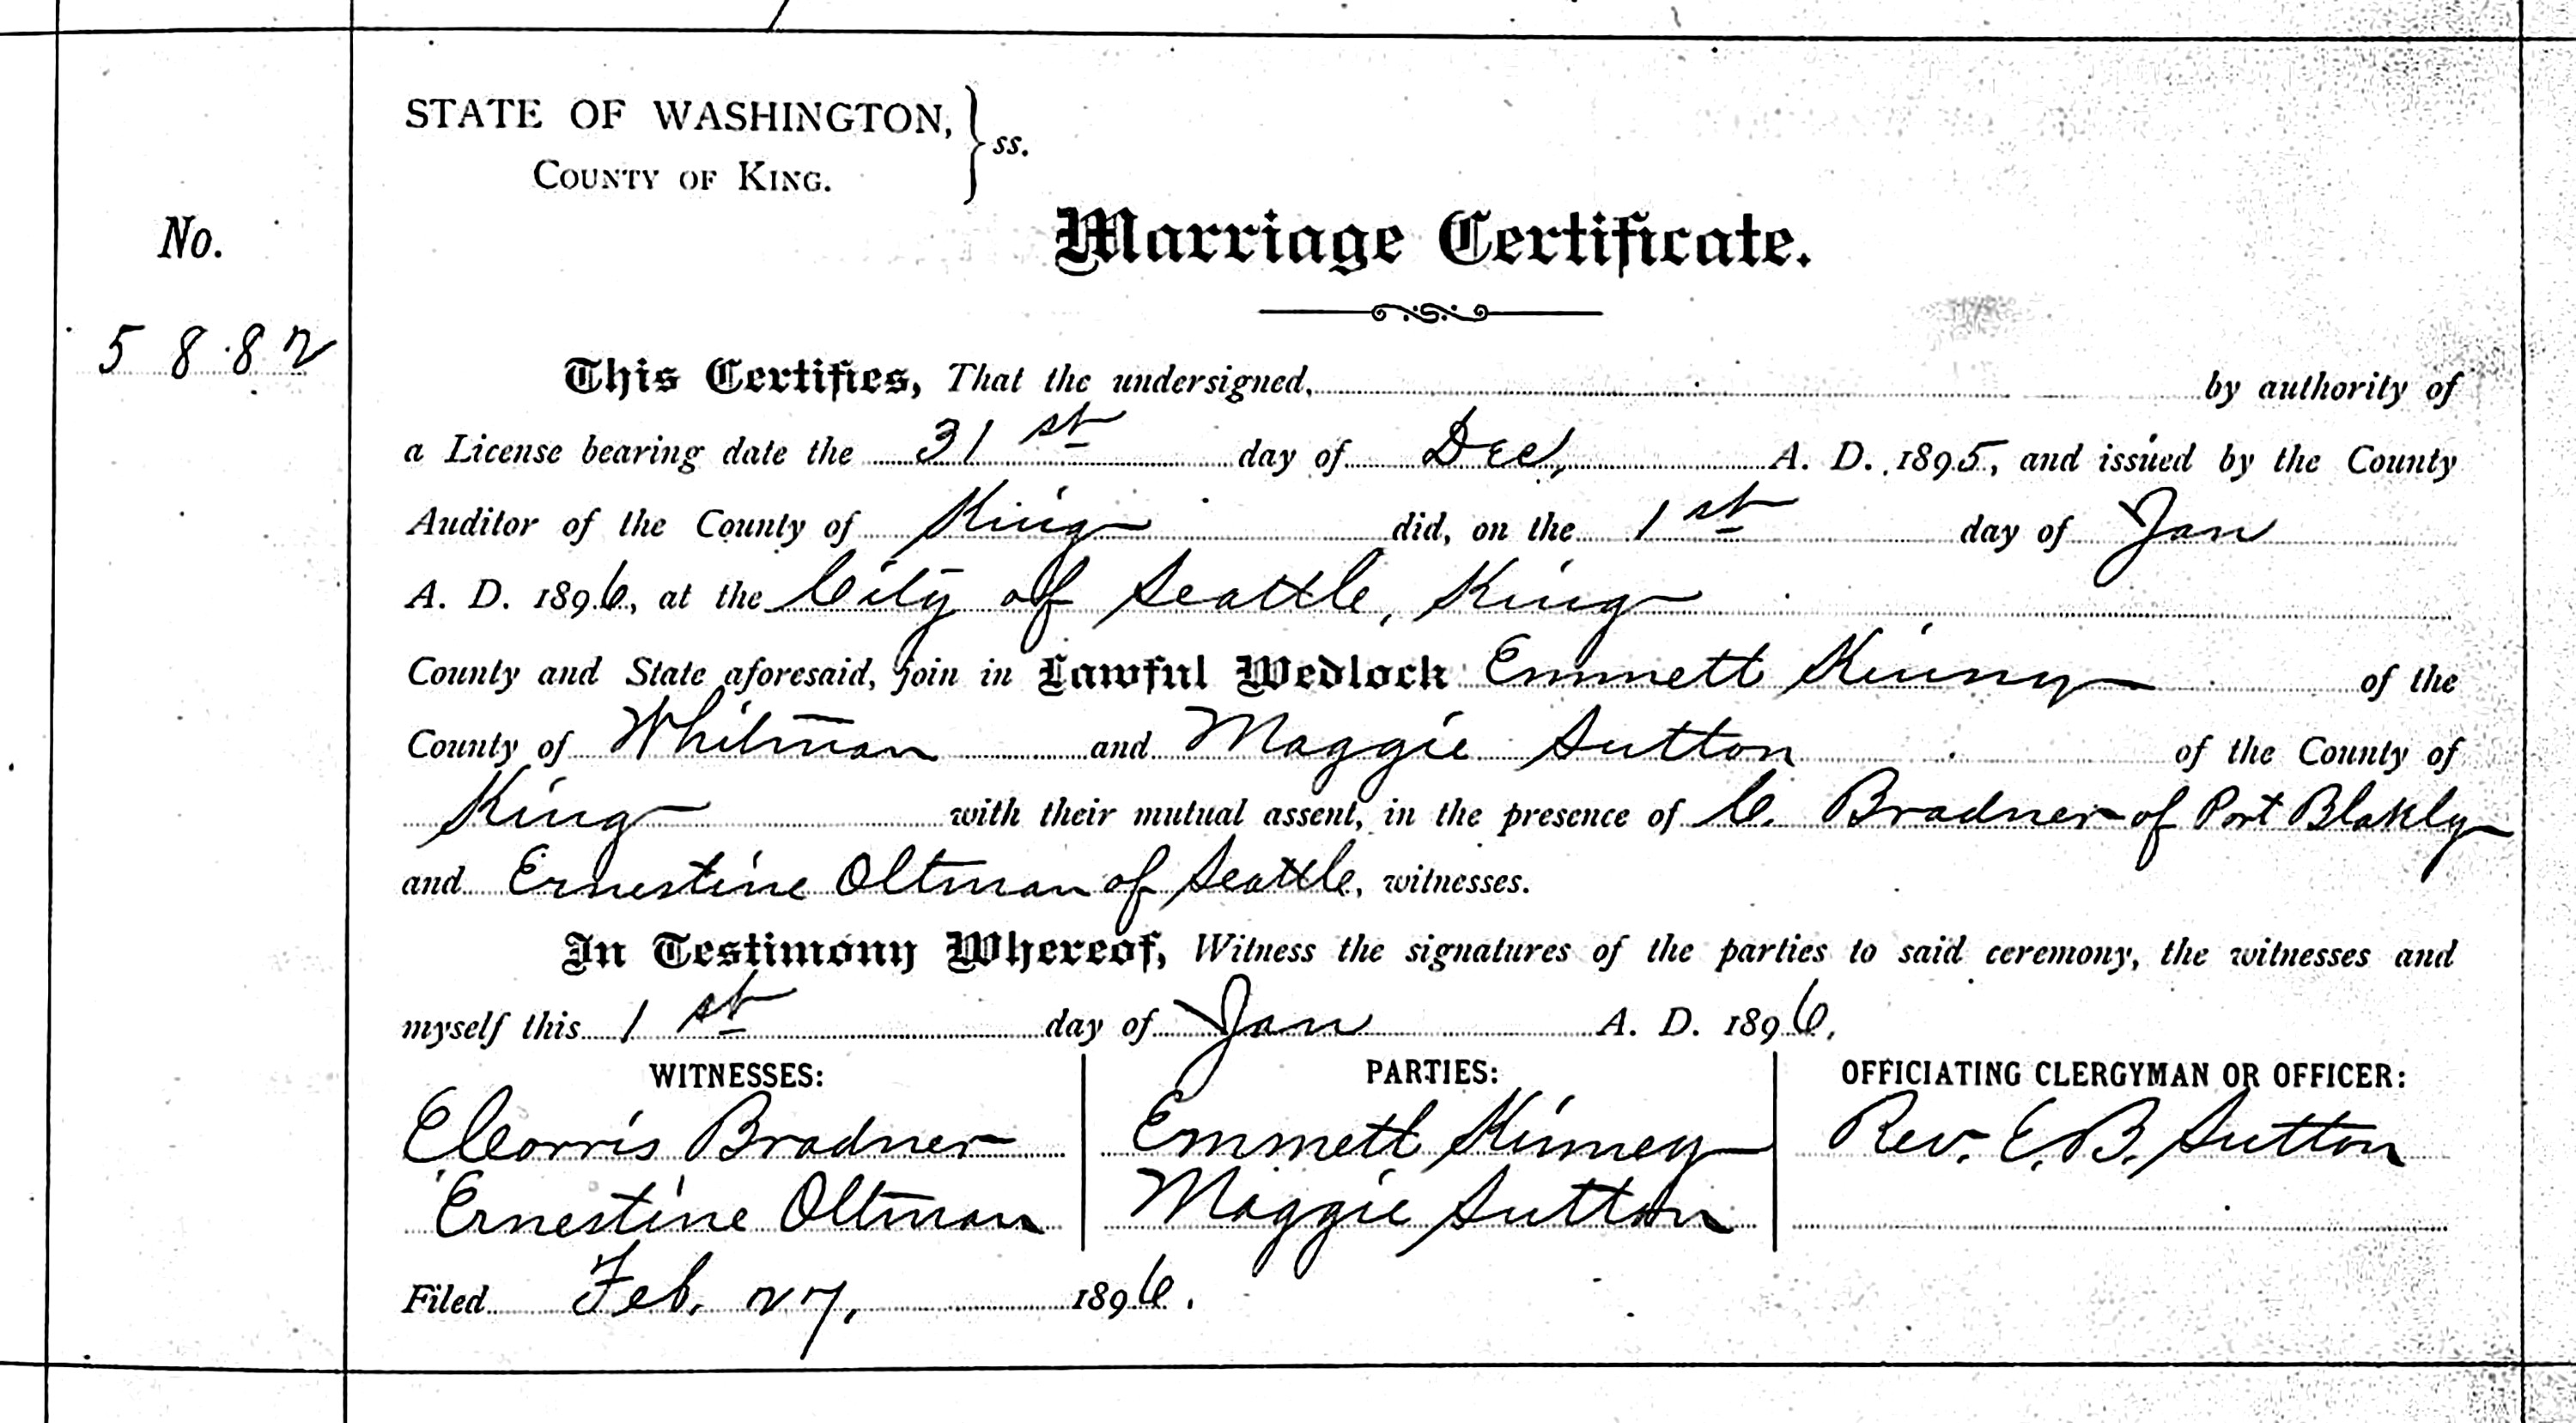 STATE OF WASHINGTON, } ss.
COUNTY OF KING.
No.
Marriage Certificate.
5 8 8 2
This Certifies, That the undersigned, by authority of
a License bearing date the 31st day of Dec, A. D. 1895, and issued by the County
Auditor of the County of King did, on the 1st day of Jan
A. D. 1896, at the City of Seattle, King
County and State aforesaid, join in Lawful Wedlock Emmett Kinny of the
County of Whitman and Maggie Sutton of the County of
King with their mutual assent, in the presence of C. Bradner of Port Blakly
and Ernestine Oltman of Seattle, witnesses.
In Testimony Whereof, Witness the signatures of the parties to said ceremony, the witnesses and
myself this 1st day of Jan A. D. 1896.
WITNESSES: PARTIES: OFFICIATING CLERGYMAN OR OFFICER:
Bradner Emmett Kinney Rev. E. B. Sutton
Ernestine Oltman Maggie Sutton
Filed Feb. 27, 1896.